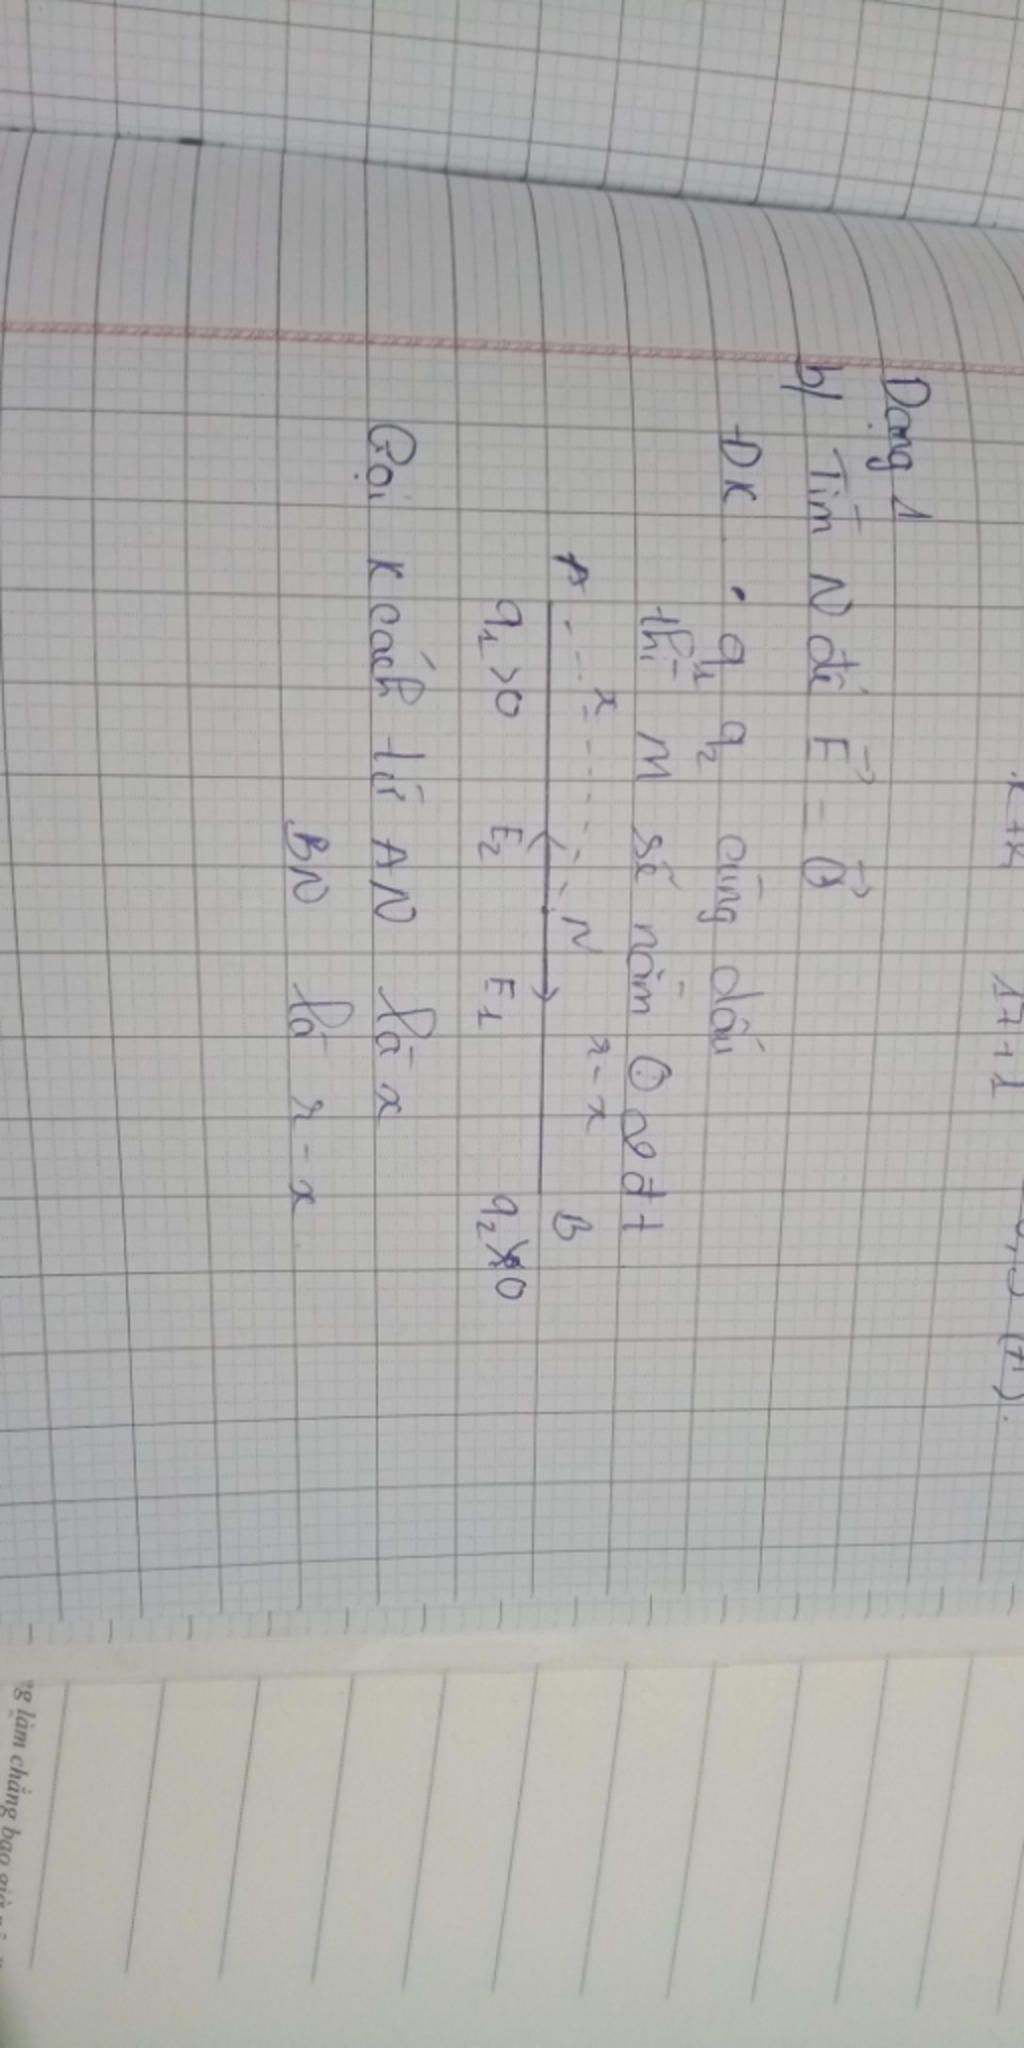 x+x 17+1 (t).
Dạng 1
b/ Tìm N để E⃗ = 0⃗
ĐK • q₁ q₂ cùng dấu
thì M sẽ nằm đt
x r-x
A N B
q₁>0 E₂ E₁ q₂>0
Gọi K cách từ AN là x
BN là r-x
làm chẳng bao giờ